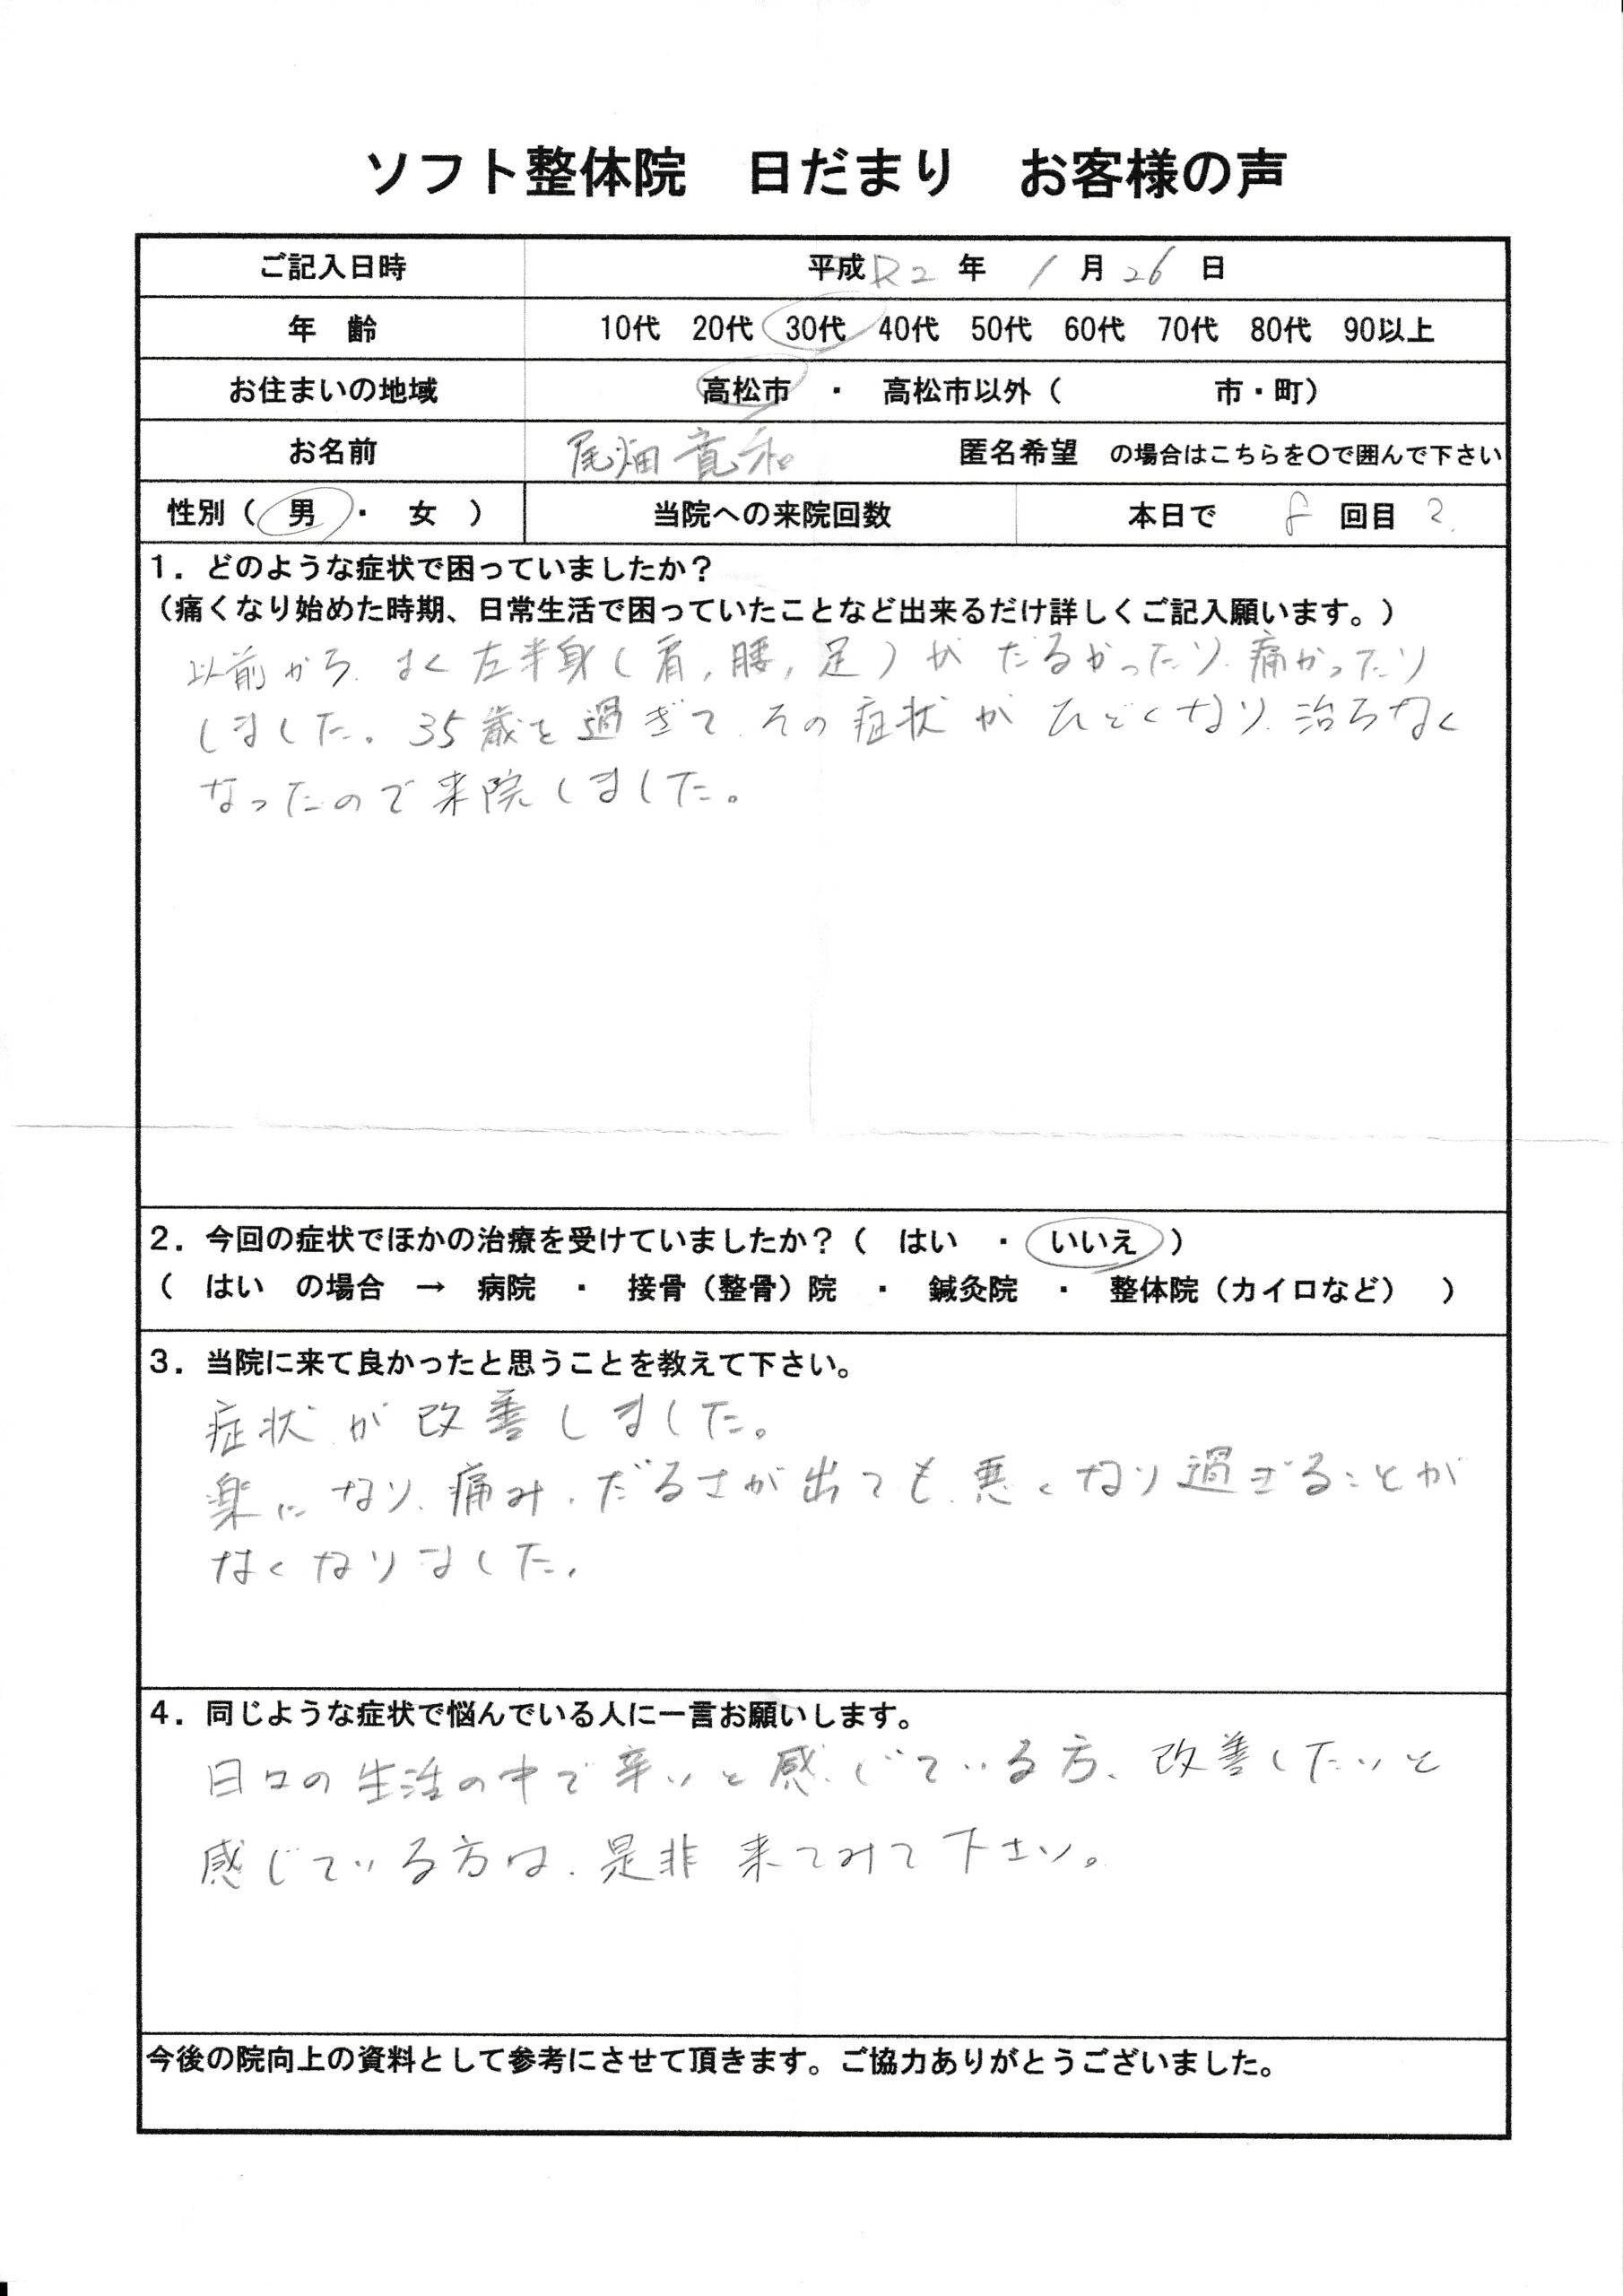 ソフト整体院 日だまり お客様の声
ご記入日時 平成R2年 1月26日
年 齢 10代 20代 30代 40代 50代 60代 70代 80代 90以上
お住まいの地域 高松市 ・ 高松市以外( 市・町)
お名前 尾畑 寛和 匿名希望 の場合はこちらを〇で囲んで下さい
性別( 男 ・ 女 ) 当院への来院回数 本日で 8 回目?
1. どのような症状で困っていましたか?
(痛くなり始めた時期、日常生活で困っていたことなど出来るだけ詳しくご記入願います。)
以前から、よく左半身(肩,腰,足)が だるかったり、痛かったり
しました。35歳を過ぎて、その症状が ひどくなり、治らなく
なったので来院しました。
2. 今回の症状でほかの治療を受けていましたか?( はい ・ いいえ )
( はい の場合 → 病院 ・ 接骨(整骨)院 ・ 鍼灸院 ・ 整体院(カイロなど) )
3. 当院に来て良かったと思うことを教えて下さい。
症状が改善しました。
楽になり、痛み、だるさが出ても、悪くなり過ぎることが
なくなりました。
4. 同じような症状で悩んでいる人に一言お願いします。
日々の生活の中で辛いと感じている方、改善したいと
感じている方は、是非 来てみて下さい。
今後の院向上の資料として参考にさせて頂きます。ご協力ありがとうございました。